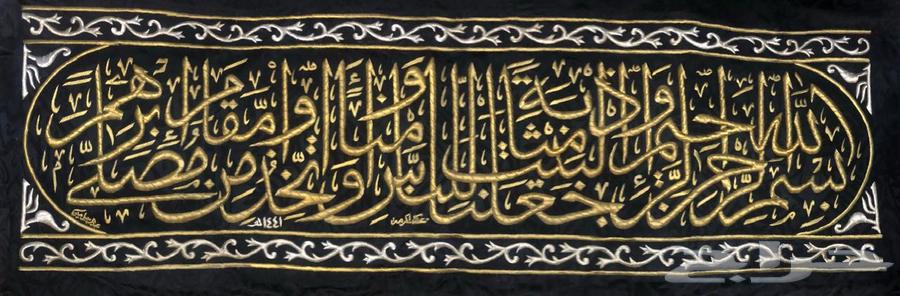 بسم الله الرحمن الرحيم وإذ جعلنا البيت مثابة للناس وأمنا واتخذوا من مقام إبراهيم مصلى
مكة المكرمة
١٤٤١هـ
حراج